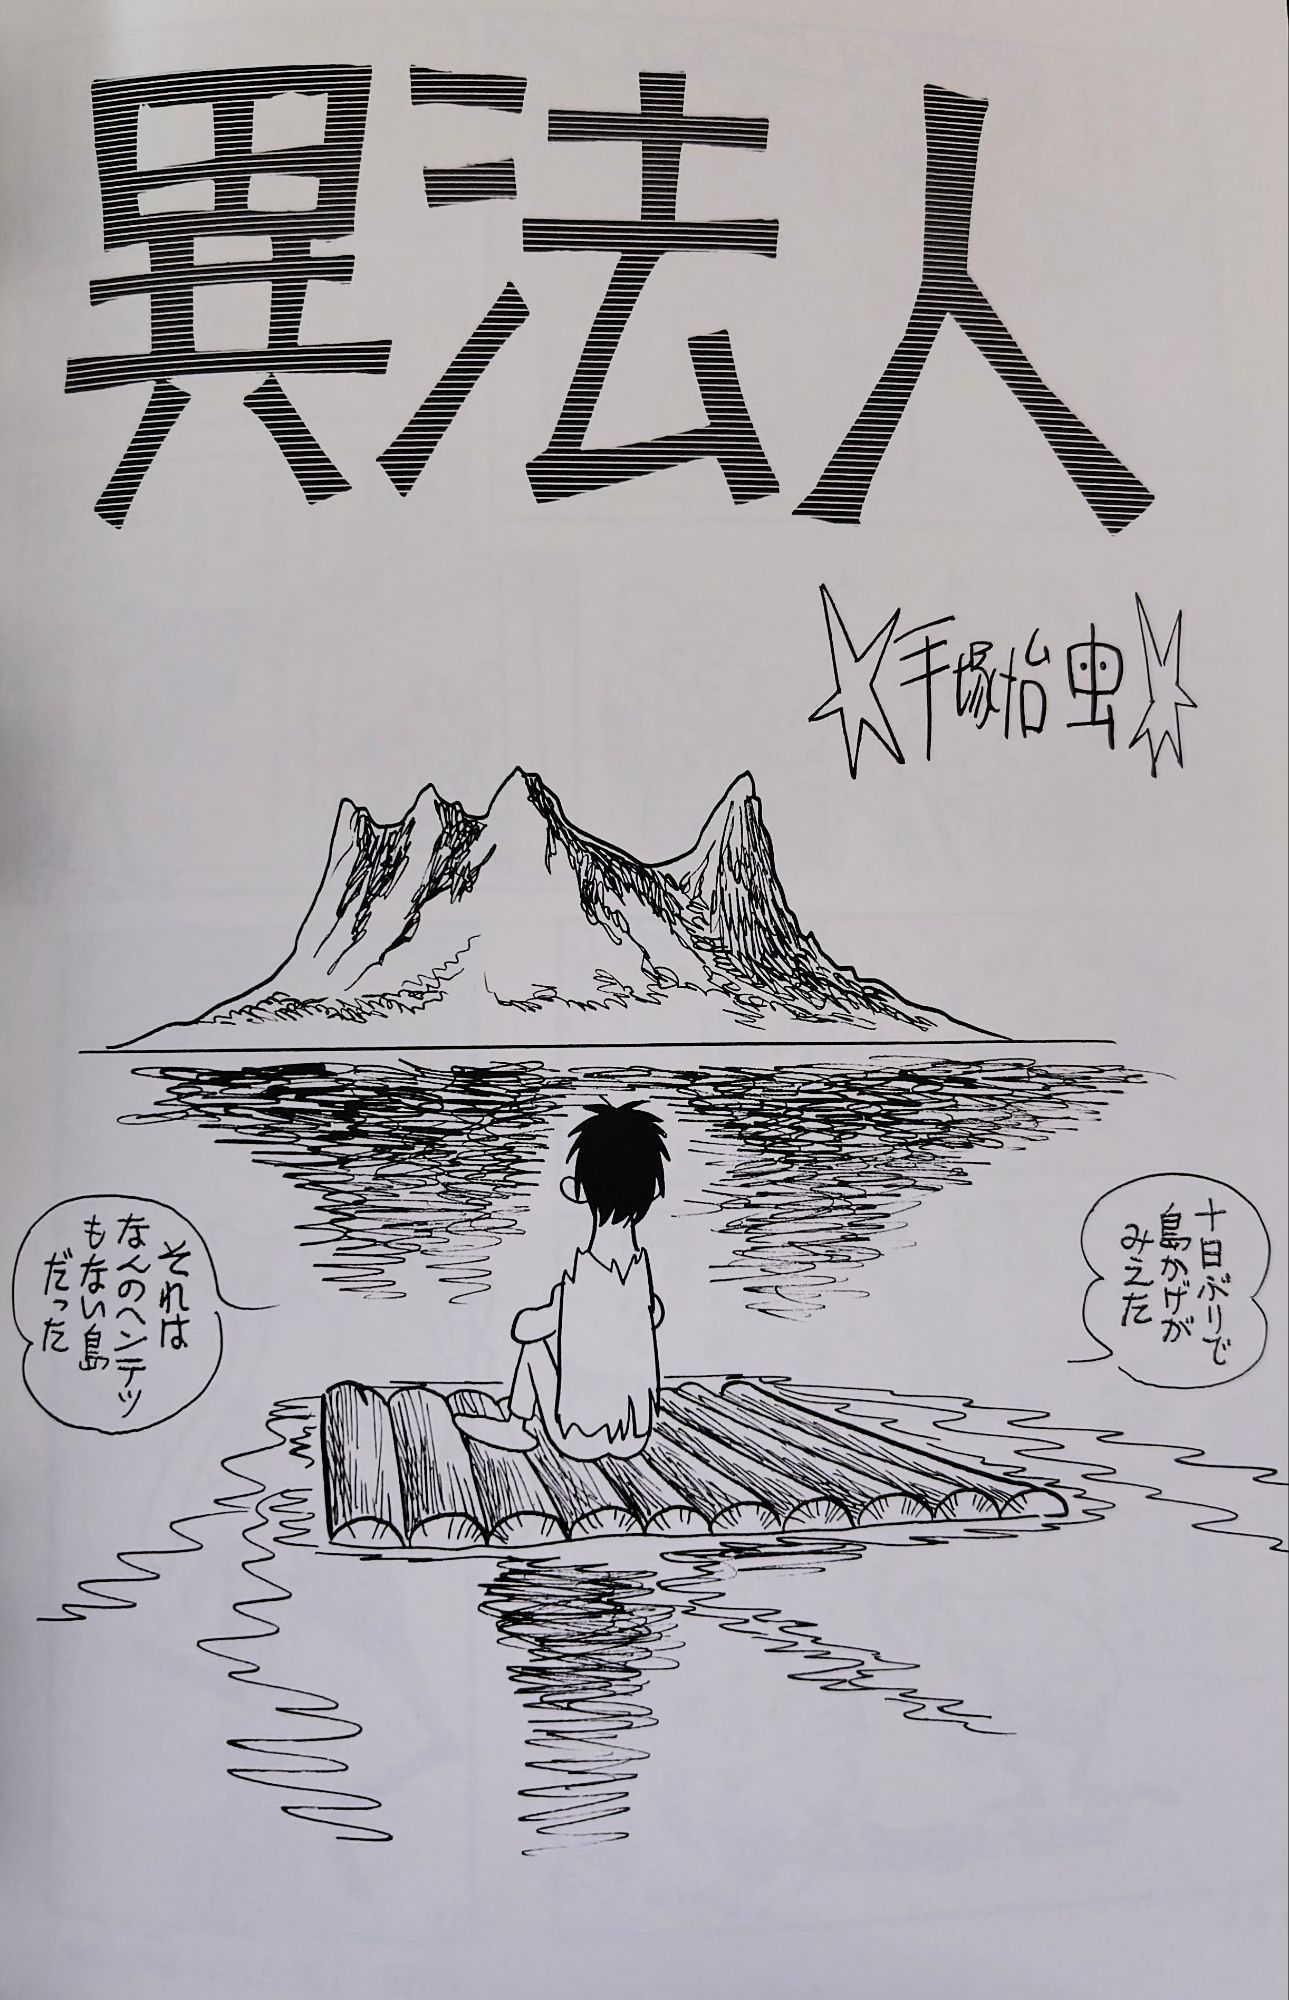 異法人
手塚治虫
十日ぶりで
島かげが
みえた
それは
なんのヘンテツ
もない島
だった